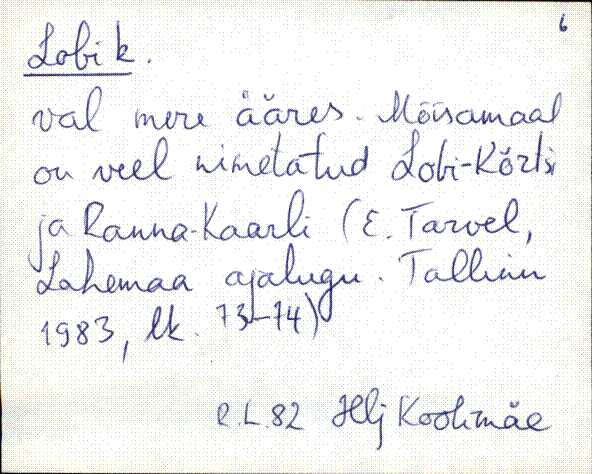 6
Lobi k.
val mere ääres. Mõisamaal
on veel nimetatud Lobi-Kõrtsi
ja Ranna-Kaarli (E. Tarvel,
Lahemaa ajalugu. Tallinn
1983, lk. 73-74)
R.L.82 Hlj Koolmäe